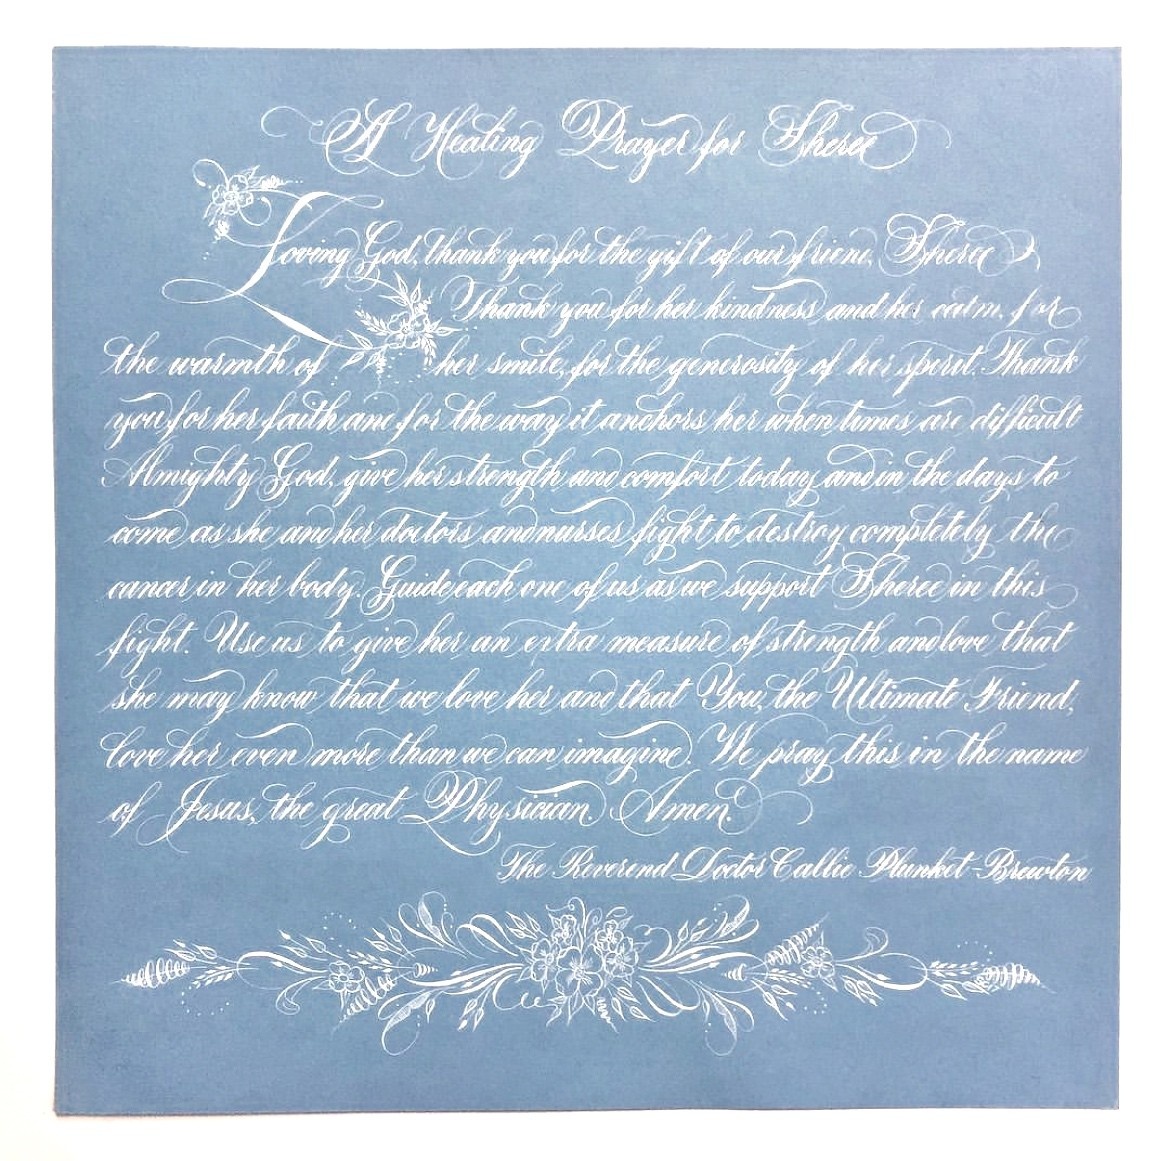 A Healing Prayer for Sheree
Loving God, thank you for the gift of our friend, Sheree
Thank you for her kindness and her calm, for
the warmth of her smile, for the generosity of her spirit. Thank
you for her faith and for the way it anchors her when times are difficult
Almighty God, give her strength and comfort today and in the days to
come as she and her doctors and nurses fight to destroy completely the
cancer in her body. Guide each one of us as we support Sheree in this
fight. Use us to give her an extra measure of strength and love that
she may know that we love her and that You, the Ultimate Friend,
love her even more than we can imagine. We pray this in the name
of Jesus, the great Physician. Amen.
The Reverend Doctor Callie Plunket-Brewton